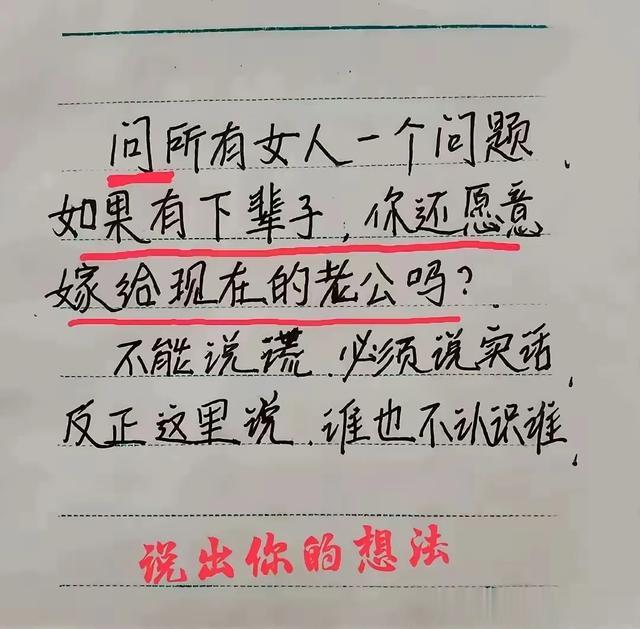 问所有女人一个问题.
如果有下辈子,你还愿意
嫁给现在的老公吗?
不能说谎.必须说实话
反正这里说.谁也不认识谁.
说出你的想法